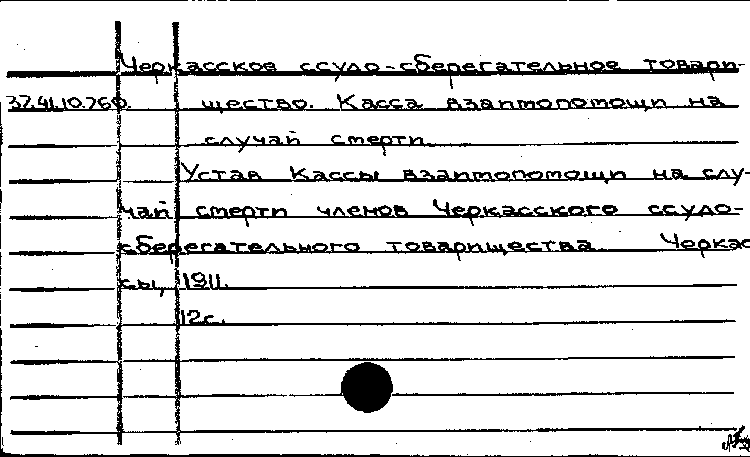 Черкасское ссудо-сберегательное товари-
37.41.10.760. щество. Касса взаимопомощи на
случай смерти.
Устав Кассы взаимопомощи на слу-
чай смерти членов Черкасского ссудо-
сберегательного товарищества. Черкас-
сы, 1911.
12с.